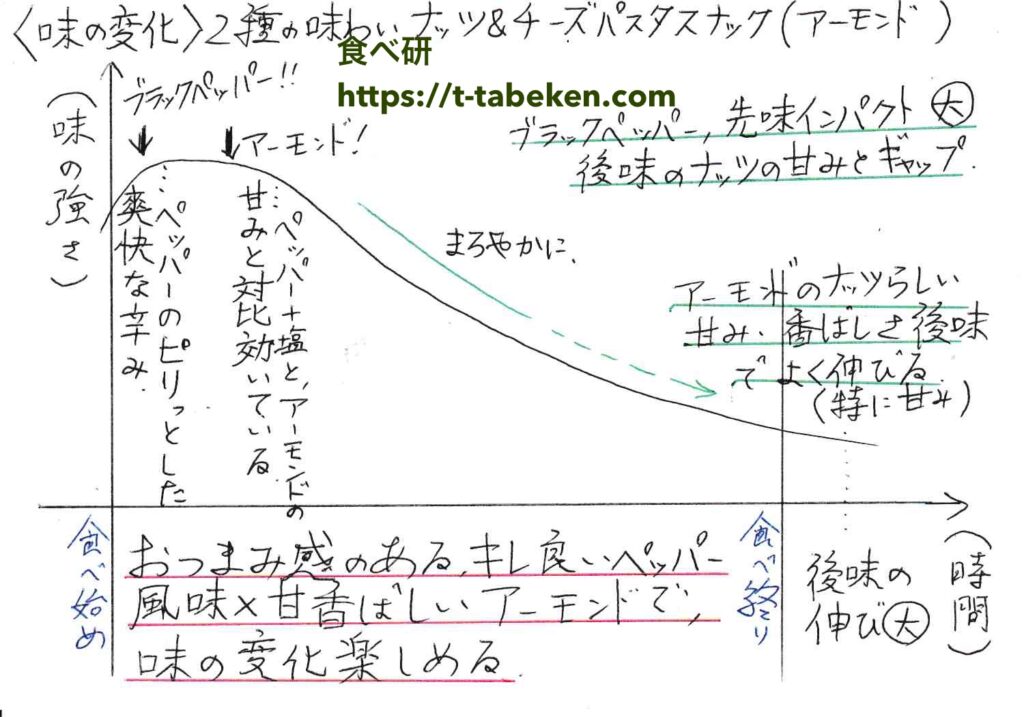 〈味の変化〉2種の味わいナッツ&チーズパスタスナック(アーモンド)
食べ研
https://t-tabeken.com
(味の強さ)
ブラックペッパー!!
アーモンド!
ブラックペッパー,先味インパクト大
後味のナッツの甘みとギャップ.
…ペッパーのピリっとした
爽快な辛み.
…ペッパー+塩と,アーモンドの
甘みと対比効いている
まろやかに.
アーモンドのナッツらしい
甘み・香ばしさ後味
でよく伸びる.
(特に甘み)
食べ始め
おつまみ感のある,キレ良いペッパー
風味×甘香ばしいアーモンドで,
味の変化楽しめる.
食べ終り
後味の
伸び大
(時間)